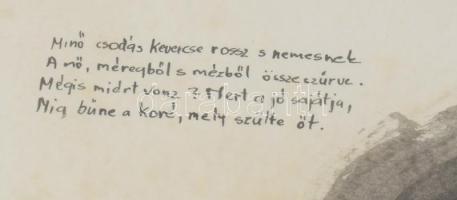 Minő csodás kevercse rossz s nemesnek
A nő, méregből s mézből összeszűrve.
Mégis miért vonz? Mert a jó sajátja,
Mig bűne a koré, mely szülte őt.
darabanth